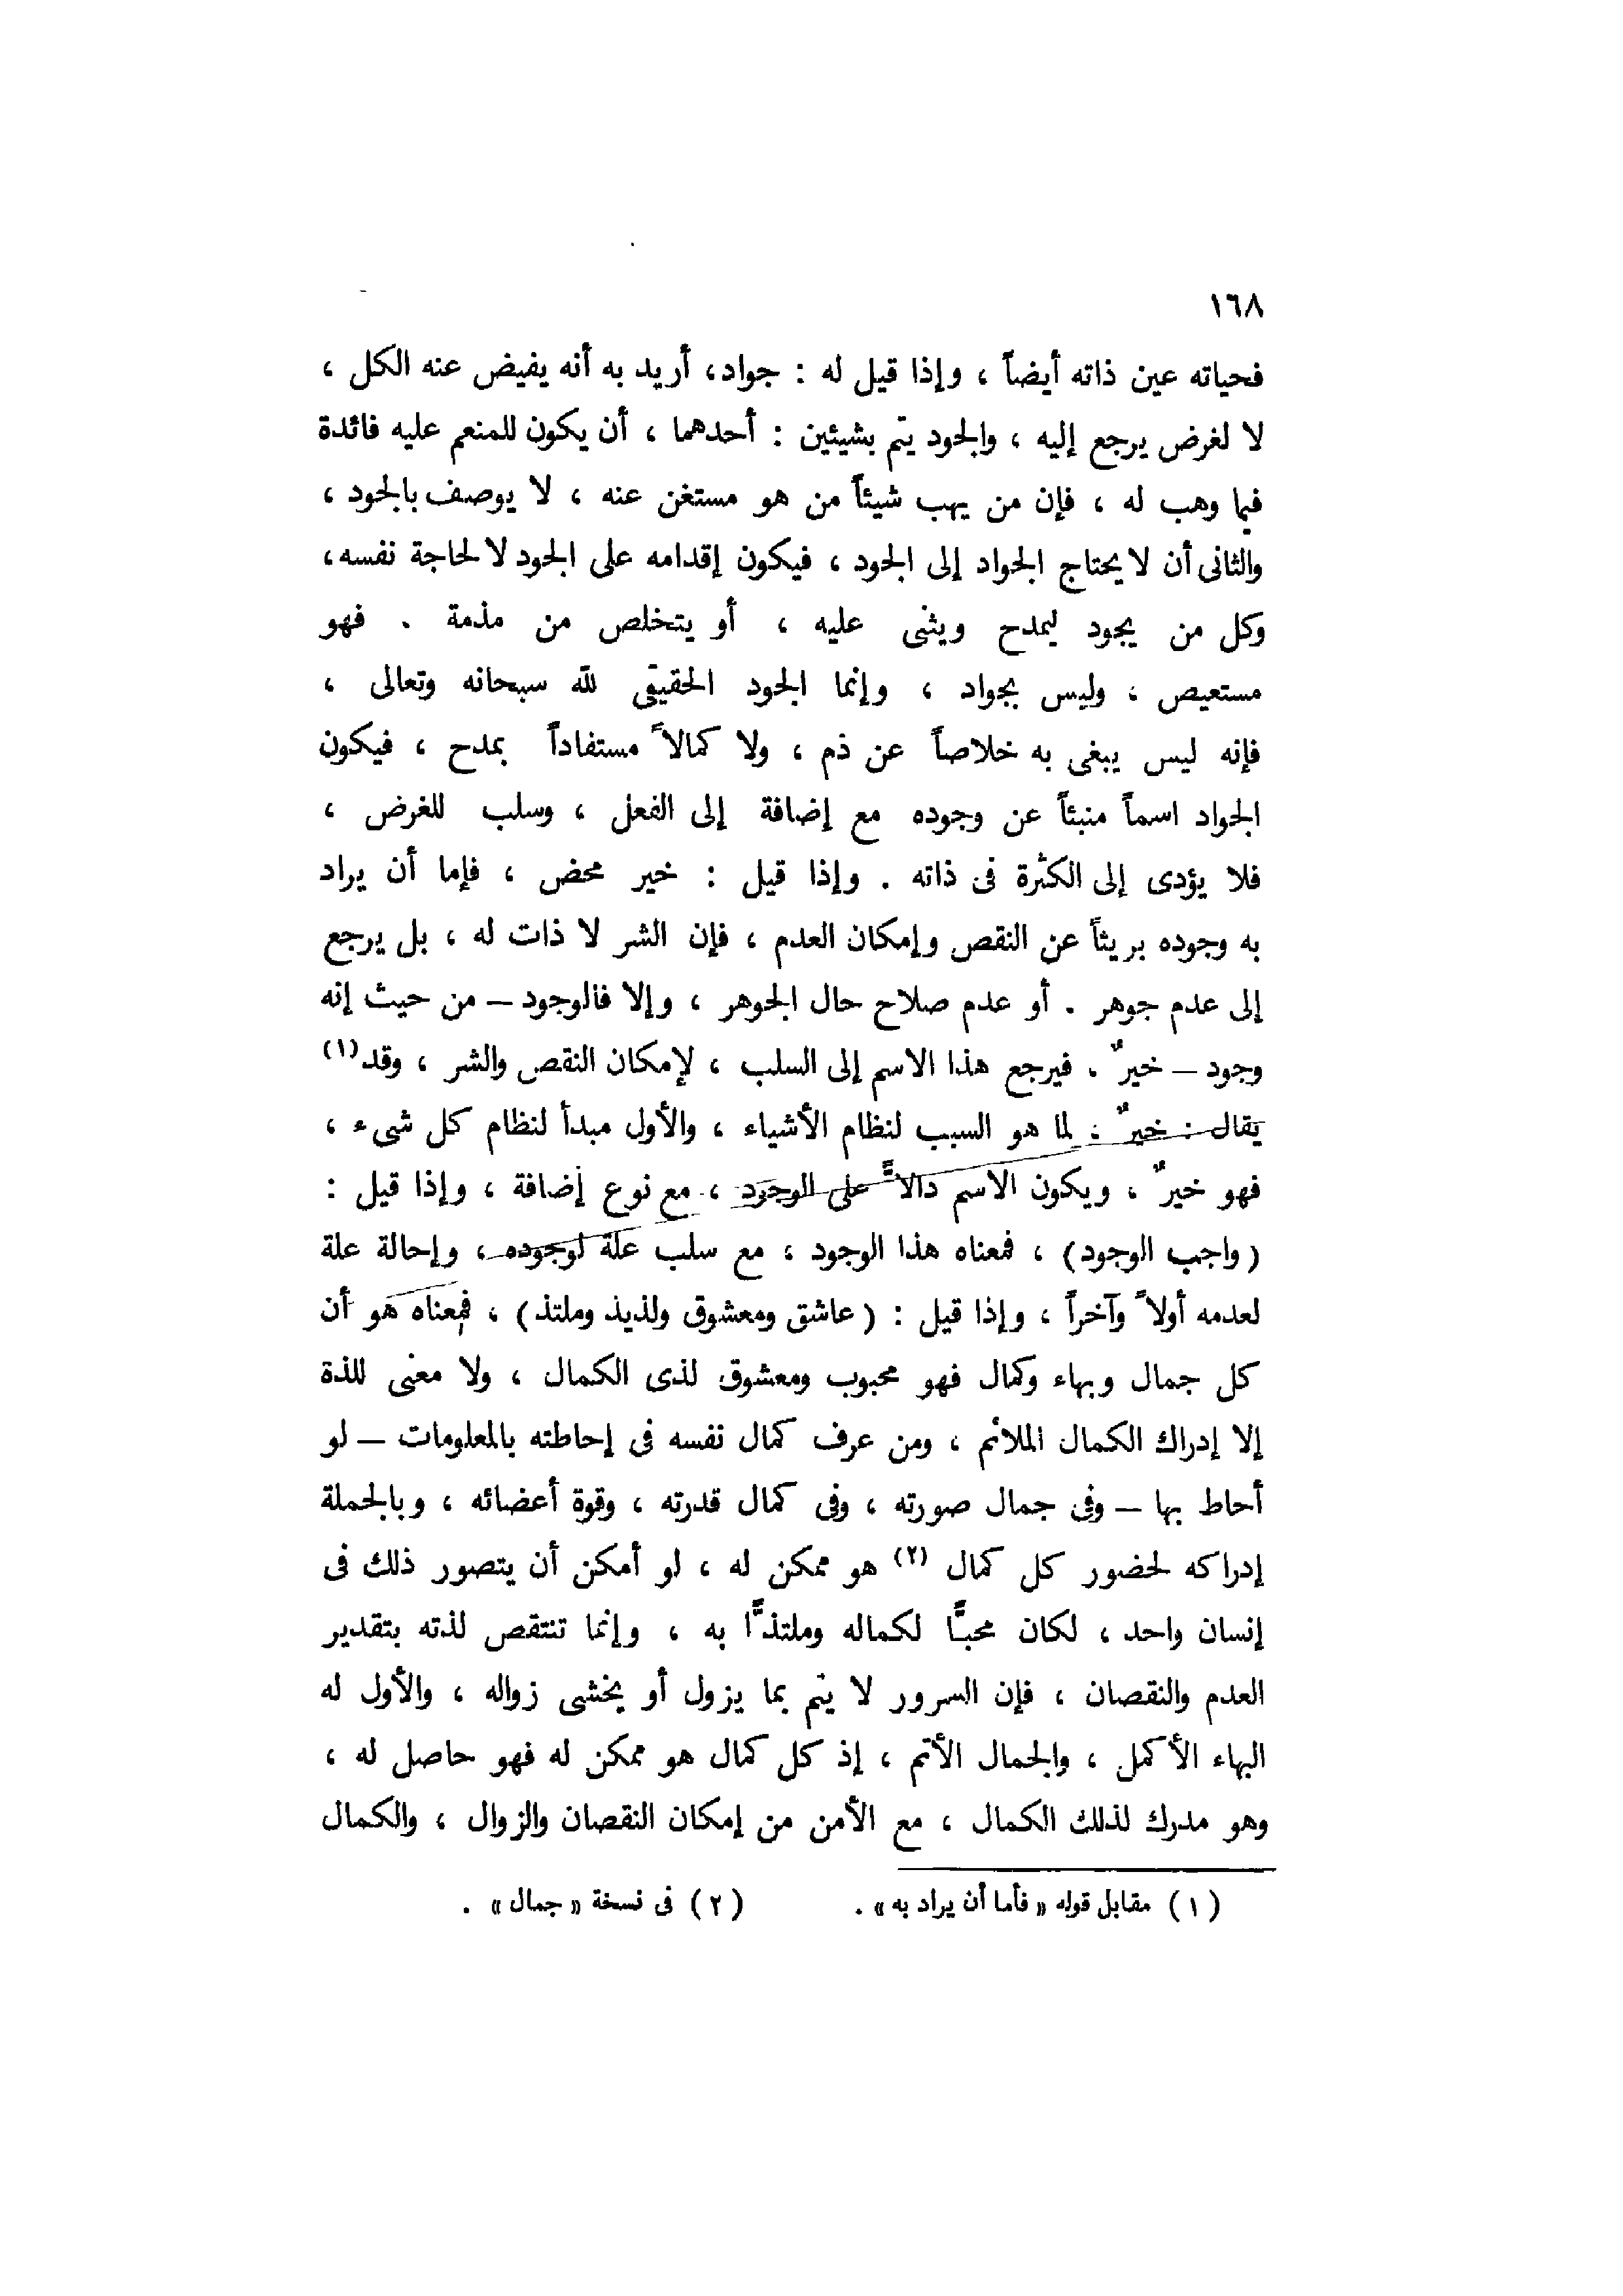 ١٦٨
فحياته عين ذاته أيضاً ، وإذا قيل له : جواد، أريد به أنه يفيض عنه الكل ،
لا لغرض يرجع إليه ، والجود يتم بشيئين : أحدهما ، أن يكون للمنعم عليه فائدة
فيما وهب له ، فإن من يهب شيئاً من هو مستغن عنه ، لا يوصف بالجود ،
والثانى أن لا يحتاج الجواد إلى الجود ، فيكون إقدامه على الجود لا لحاجة نفسه،
وكل من يجود ليمدح ويثنى عليه ، أو يتخلص من مذمة . فهو
مستعيص ، وليس بجواد ، وإنما الجود الحقيقى لله سبحانه وتعالى ،
فإنه ليس يبغى به خلاصاً عن ذم ، ولا كمالاً مستفاداً بمدح ، فيكون
الجواد اسماً منبئاً عن وجوده مع إضافة إلى الفعل ، وسلب للغرض ،
فلا يؤدى إلى الكثرة فى ذاته . وإذا قيل : خير محض ، فإما أن يراد
به وجوده بريئاً عن النقص وإمكان العدم ، فإن الشر لا ذات له ، بل يرجع
إلى عدم جوهر . أو عدم صلاح حال الجوهر ، وإلا فالوجود – من حيث إنه
وجود – خيرٌ . فيرجع هذا الاسم إلى السلب ، لإمكان النقص والشر ، وقد (١)
يقال : خيرٌ ، لما هو السبب لنظام الأشياء ، والأول مبدأ لنظام كل شىء ،
فهو خيرٌ ، ويكون الاسم دالاًّ على الوجود ، مع نوع إضافة ، وإذا قيل :
(واجب الوجود) ، فمعناه هذا الوجود ، مع سلب علة لوجوده ، وإحالة علة
لعدمه أولاً وآخراً ، وإذا قيل : (عاشق ومعشوق ولذيذ وملتذ) ، فمعناه هو أن
كل جمال وبهاء وكمال فهو محبوب ومعشوق لذى الكمال ، ولا معنى للذة
إلا إدراك الكمال الملائم ، ومن عرف كمال نفسه فى إحاطته بالمعلومات – لو
أحاط بها – وفى جمال صورته ، وفى كمال قدرته ، وقوة أعضائه ، وبالجملة
إدراكه لحضور كل كمال (٢) هو ممكن له ، لو أمكن أن يتصور ذلك فى
إنسان واحد ، لكان محبًّا لكماله وملتذًّا به ، وإنما تنتقص لذته بتقدير
العدم والنقصان ، فإن السرور لا يتم بما يزول أو يخشى زواله ، والأول له
البهاء الأكمل ، والجمال الأتم ، إذ كل كمال هو ممكن له فهو حاصل له ،
وهو مدرك لذلك الكمال ، مع الأمن من إمكان النقصان والزوال ، والكمال
(١) مقابل قوله «فأما أن يراد به» . (٢) فى نسخة «جمال» .